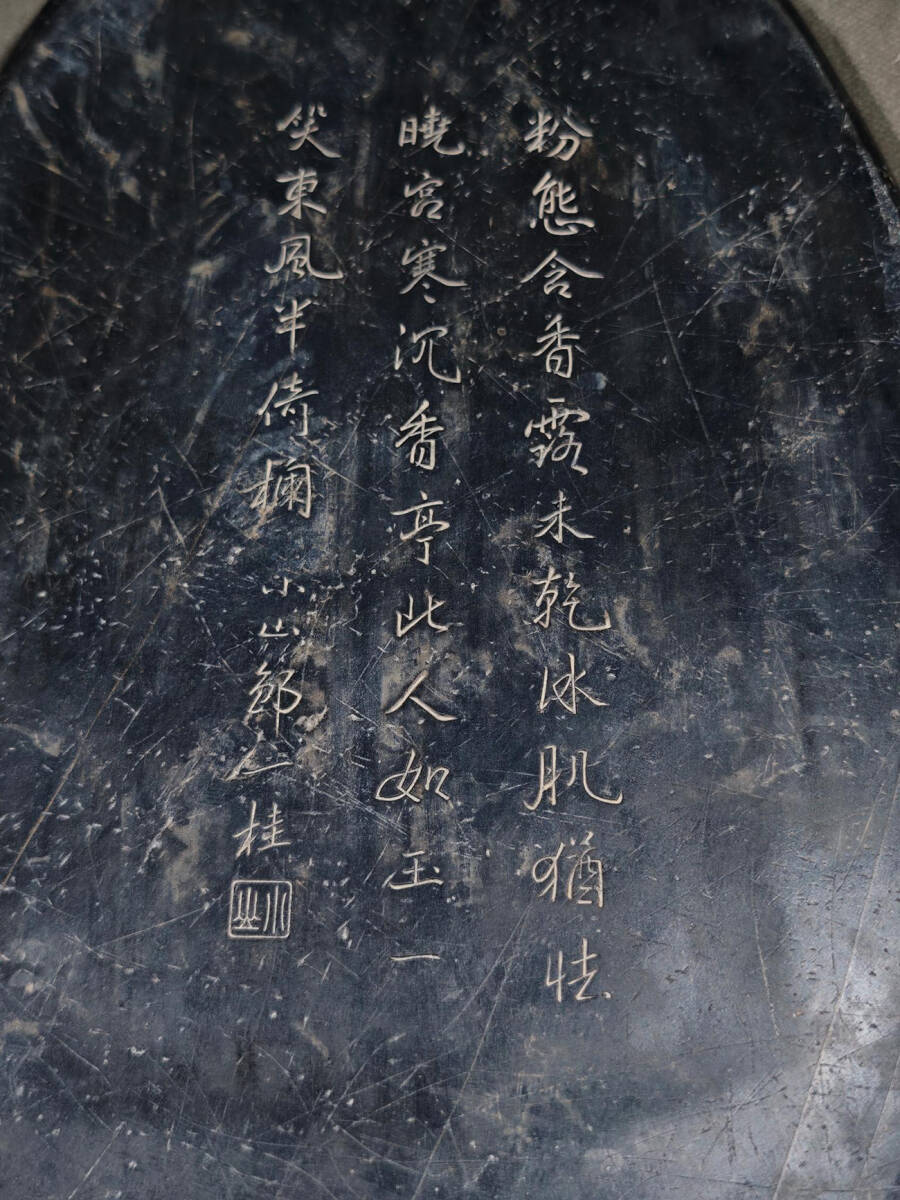 粉態含香露未乾冰肌猶怯
曉宮寒沉香亭此人如玉一
笑東風半倚欄 小山鄒一桂
小山